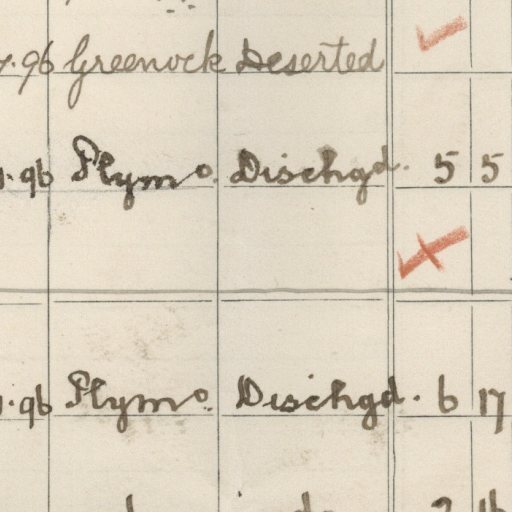 .96 Greenock Deserted
.96 Plymo. Dischgd. 5 5
.96 Plymo. Dischgd. 6 17